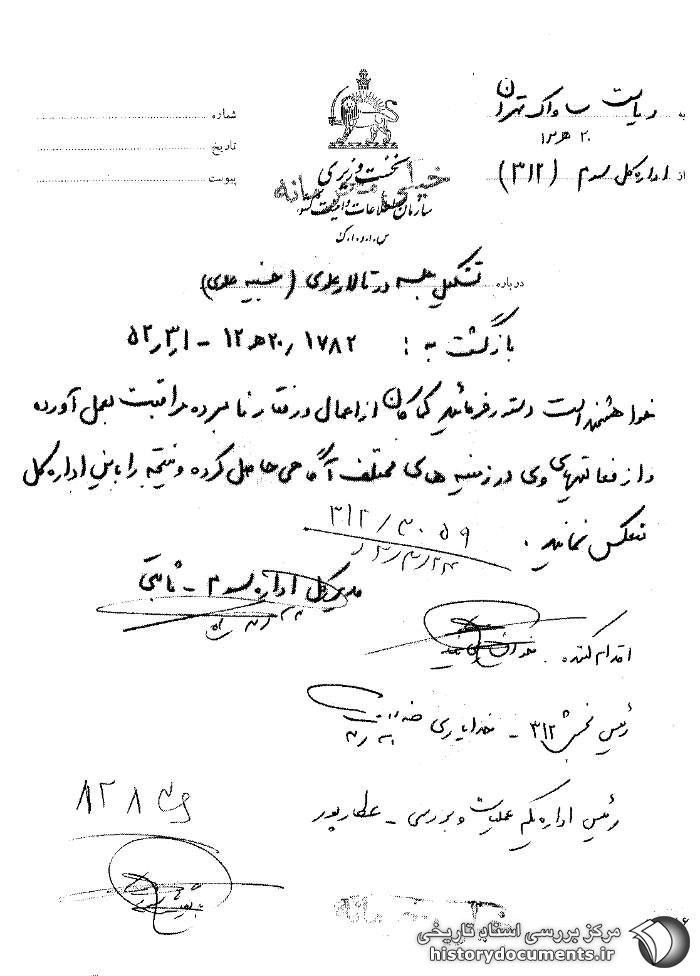 به ریاست ساواک تهران
۲۰ هـ ۱۲
از اداره کل سوم (۳۱۲)
شماره
تاریخ
پیوست
نخست وزیری
خیلی محرمانه
سازمان اطلاعات و امنیت کشور
س.ا.و.ا.ک
درباره تشکیل جلسه در تالار علوی (حسینیه علوی)
بازگشت به : ۱۷۸۲ / ۲۰هـ ۱۲ - ۵۲/۳/۱
خواهشمند است دستور فرمائید کماکان از اعمال و رفتار نامبرده مراقبت بعمل آورده
و از فعالیتهای وی در زمینه های مختلف آگاهی حاصل کرده و نتیجه را باین اداره کل
منعکس نمایند .
۳۱۲/۳۰۵۹
مدیر کل اداره سوم - ثابتی
اقدام کننده
رئیس بخش ۳۱۲ - خدایاری
رئیس اداره یکم عملیات و بررسی - عطارپور
۸۲۸
خیلی محرمانه
مرکز بررسی اسناد تاریخی
historydocuments.ir